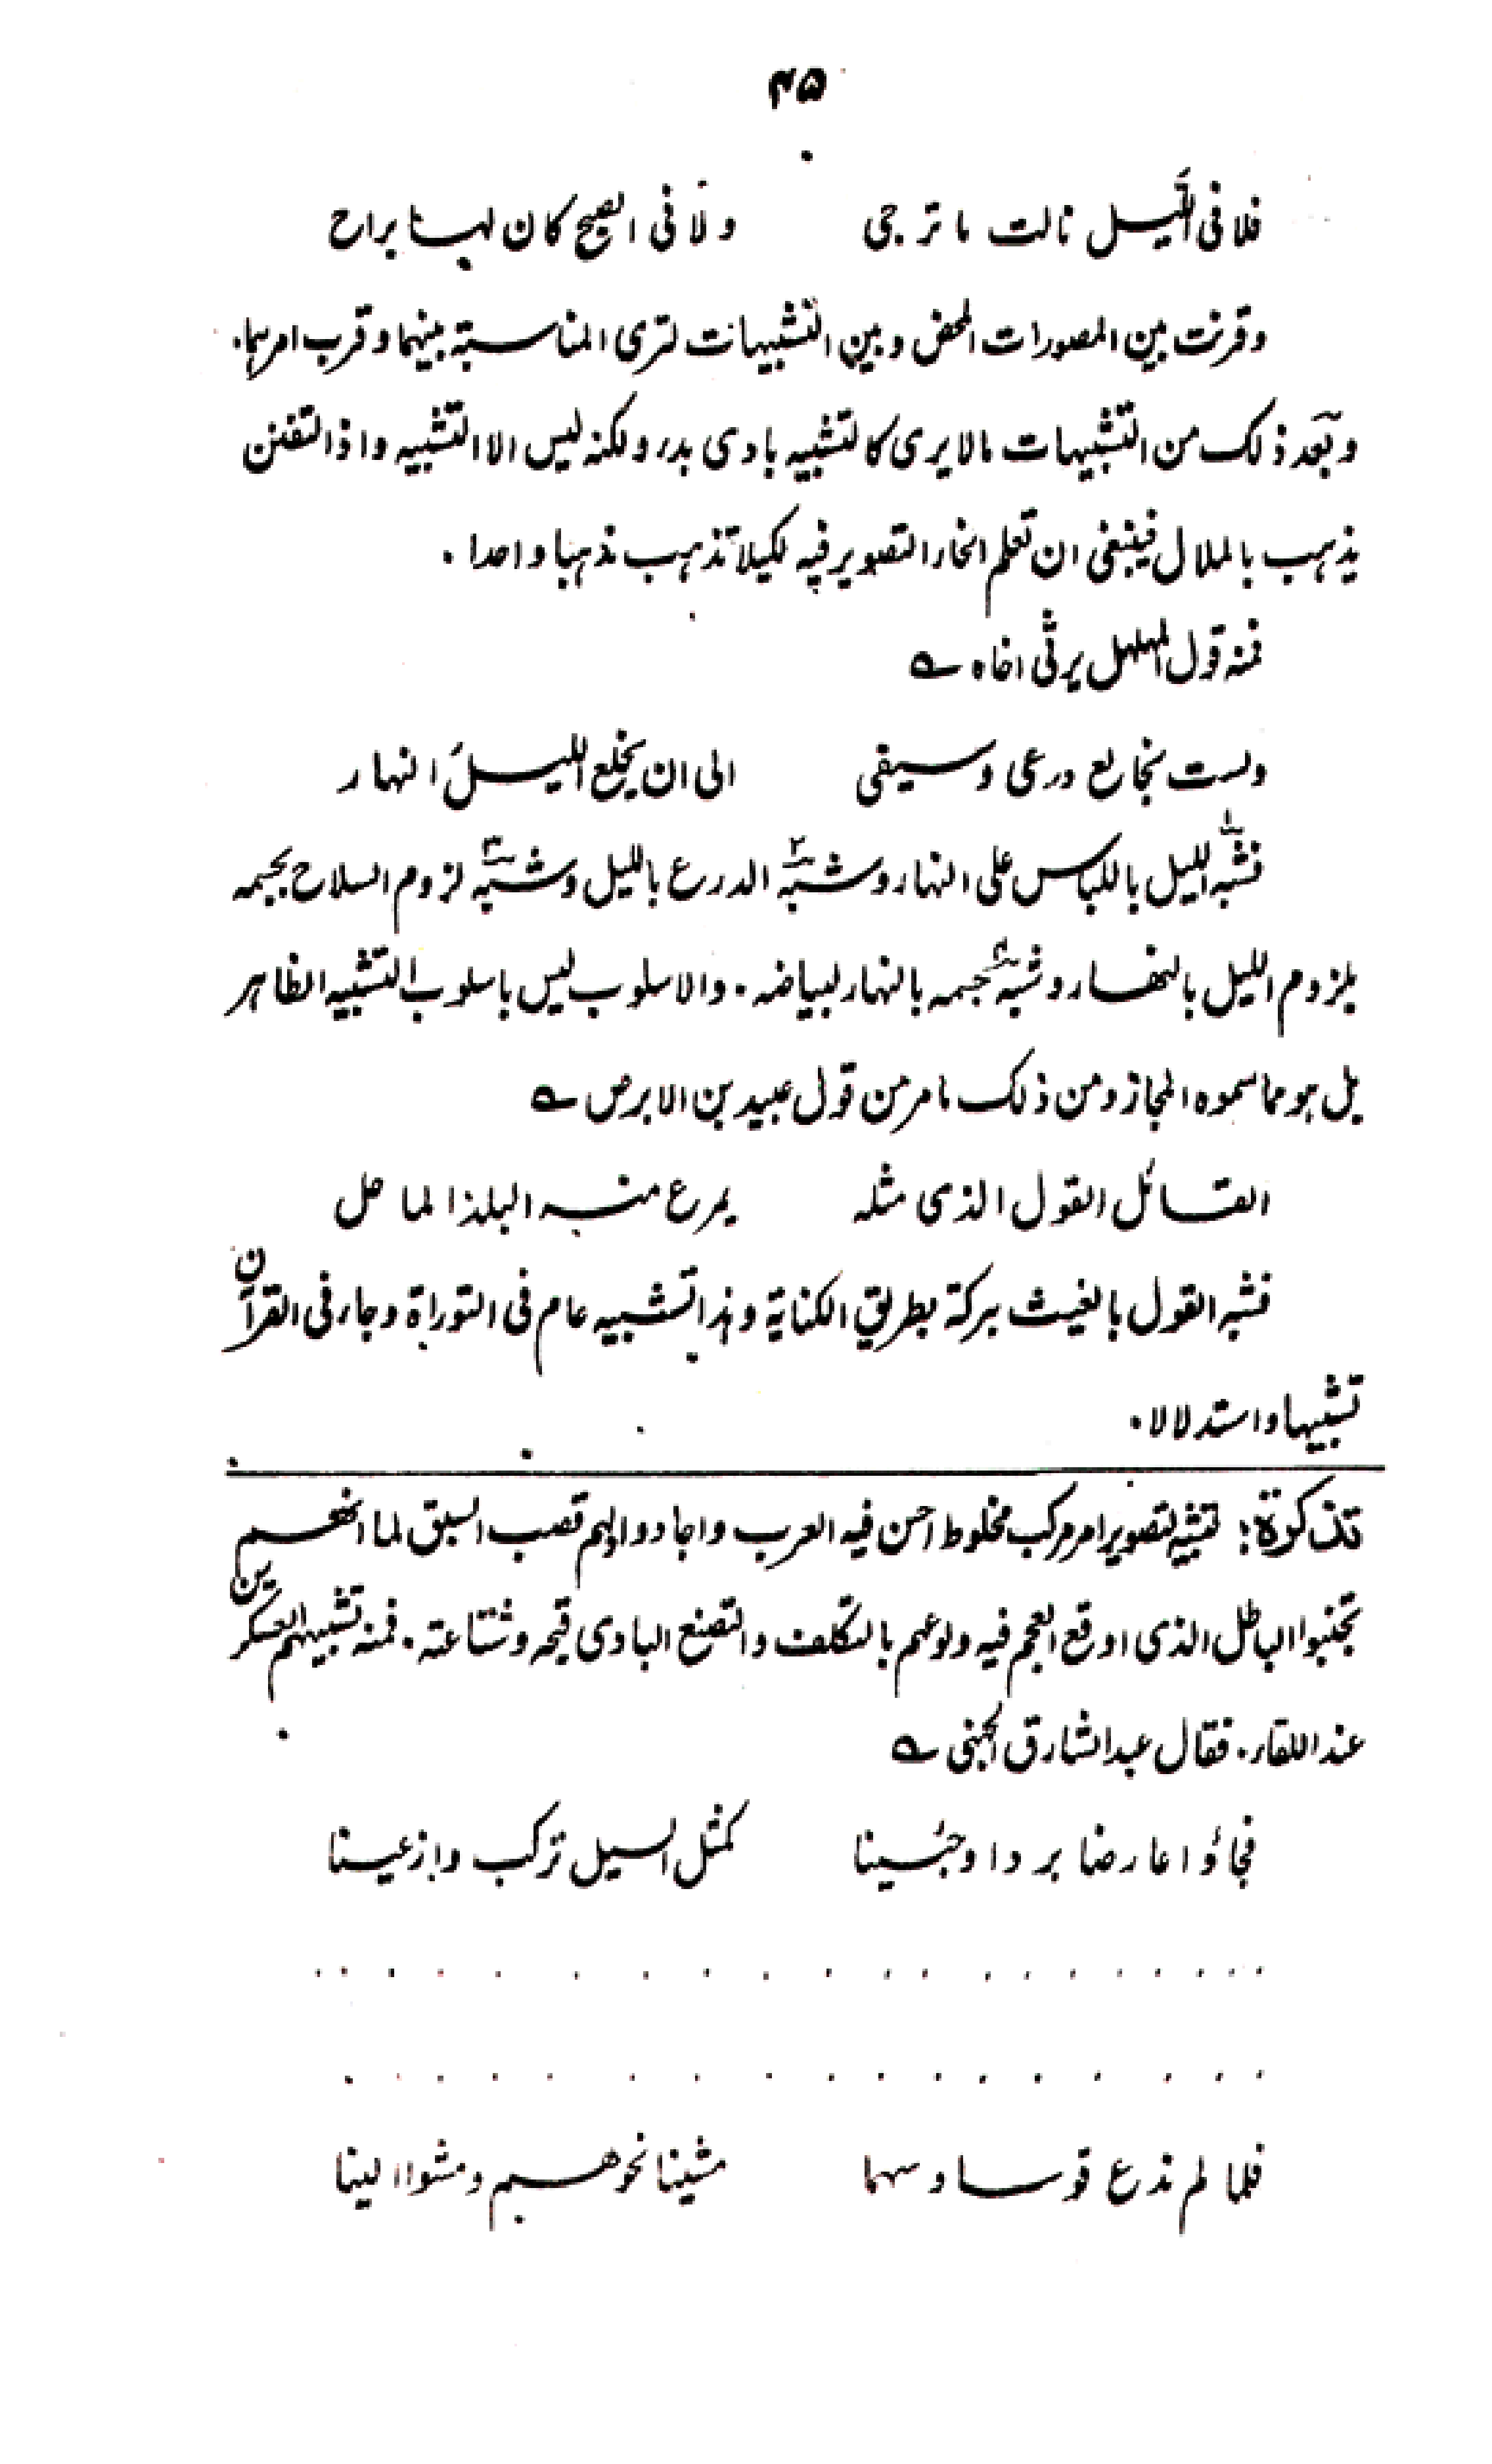 ۴۵
فلا فی اللیل نالت ما ترجی ولا فی الصبح کان لہا براح
وقرنت بین المصورات المحض وبین التشبیہات لتری المناسبۃ بینہما وقرب امرہما.
وبعد ذلک من التشبیہات مالا یری کالتشبیہ بادی بدر ولکنہ لیس الا التشبیہ واذ التفنن
یذہب بالملال فینبغی ان تعلم انحاء التصویر فیہ لکیلا تذہب مذہبا واحدا.
فمنہ قول المہلہل یرثی اخاہ ؎
ولست بخالع درعی وسیفی الی ان یخلع اللیلَ النہار
فشبّہ۱ اللیل باللباس علی النہار وشبّہ۲ الدرع باللیل وشبّہ۳ لزوم السلاح بجسمہ
بلزوم اللیل بالنھار وشبہ۴ جسمہ بالنہار لبیاضہ. والاسلوب لیس باسلوب التشبیہ الظاہر
بل ہو مما سموہ المجاز ومن ذلک مامر من قول عبید بن الابرص ؎
القائل القول الذی مثلہ یمرع منہ البلد الماحل
فشبہ القول بالغیث برکۃ بطریق الکنایۃ وہذا تشبیہ عام فی التوراۃ وجاء فی القرآن
تشبیہا واستدلالا.
تذکرۃ: تشبیہ تصویر امر مرکب مخلوط احسن فیہ العرب واجادوا ولہم قصب السبق لما انھم
تجنبوا الباطل الذی اوقع العجم فیہ ولوعہم بالتکلف والتصنع البادی قبحہ وشناعتہ. فمنہ تشبیہہم العسکرین
عند اللقاء. فقال عبدالشارق الجہنی ؎
فجاؤا عارضا بردا وجئینا کمثل السیل نرکب وازعینا
. . . . . . . . . . . . . . . . . . .
. . . . . . . . . . . . . . . . .
فلما لم ندع قوسا وسہما مشینا نحوھم ومشوا الینا